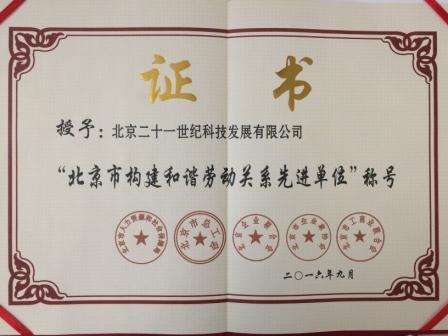 证 书
授予：北京二十一世纪科技发展有限公司
“北京市构建和谐劳动关系先进单位”称号
北京市人力资源和社会保障局
北京市总工会
北京企业联合会
北京市企业家协会
北京市工商业联合会
二〇一六年九月